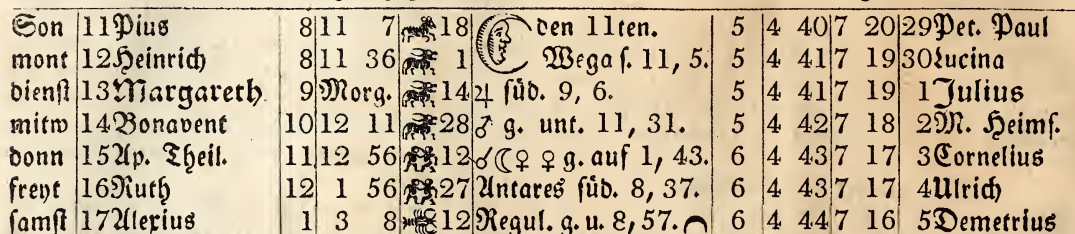 Son 11 Pius 8 11 7 18 den 11ten. 5 4 40 7 20 29 Pet. Paul
mont 12 Heinrich 8 11 36 1 Wega s. 11, 5. 5 4 41 7 19 30 Lucina
dienst 13 Margareth 9 Morg. 14 ♃ süd. 9, 6. 5 4 41 7 19 1 Julius
mitw 14 Bonavent 10 12 11 28 ♂ g. unt. 11, 31. 5 4 42 7 18 2 M. Heims.
donn 15 Ap. Theil. 11 12 56 12 ☌☾♀ ♀ g. auf 1, 43. 6 4 43 7 17 3 Cornelius
freyt 16 Ruth 12 1 56 27 Antares süd. 8, 37. 6 4 43 7 17 4 Ulrich
samst 17 Alexius 1 3 8 12 Regul. g. u. 8, 57. 6 4 44 7 16 5 Demetrius